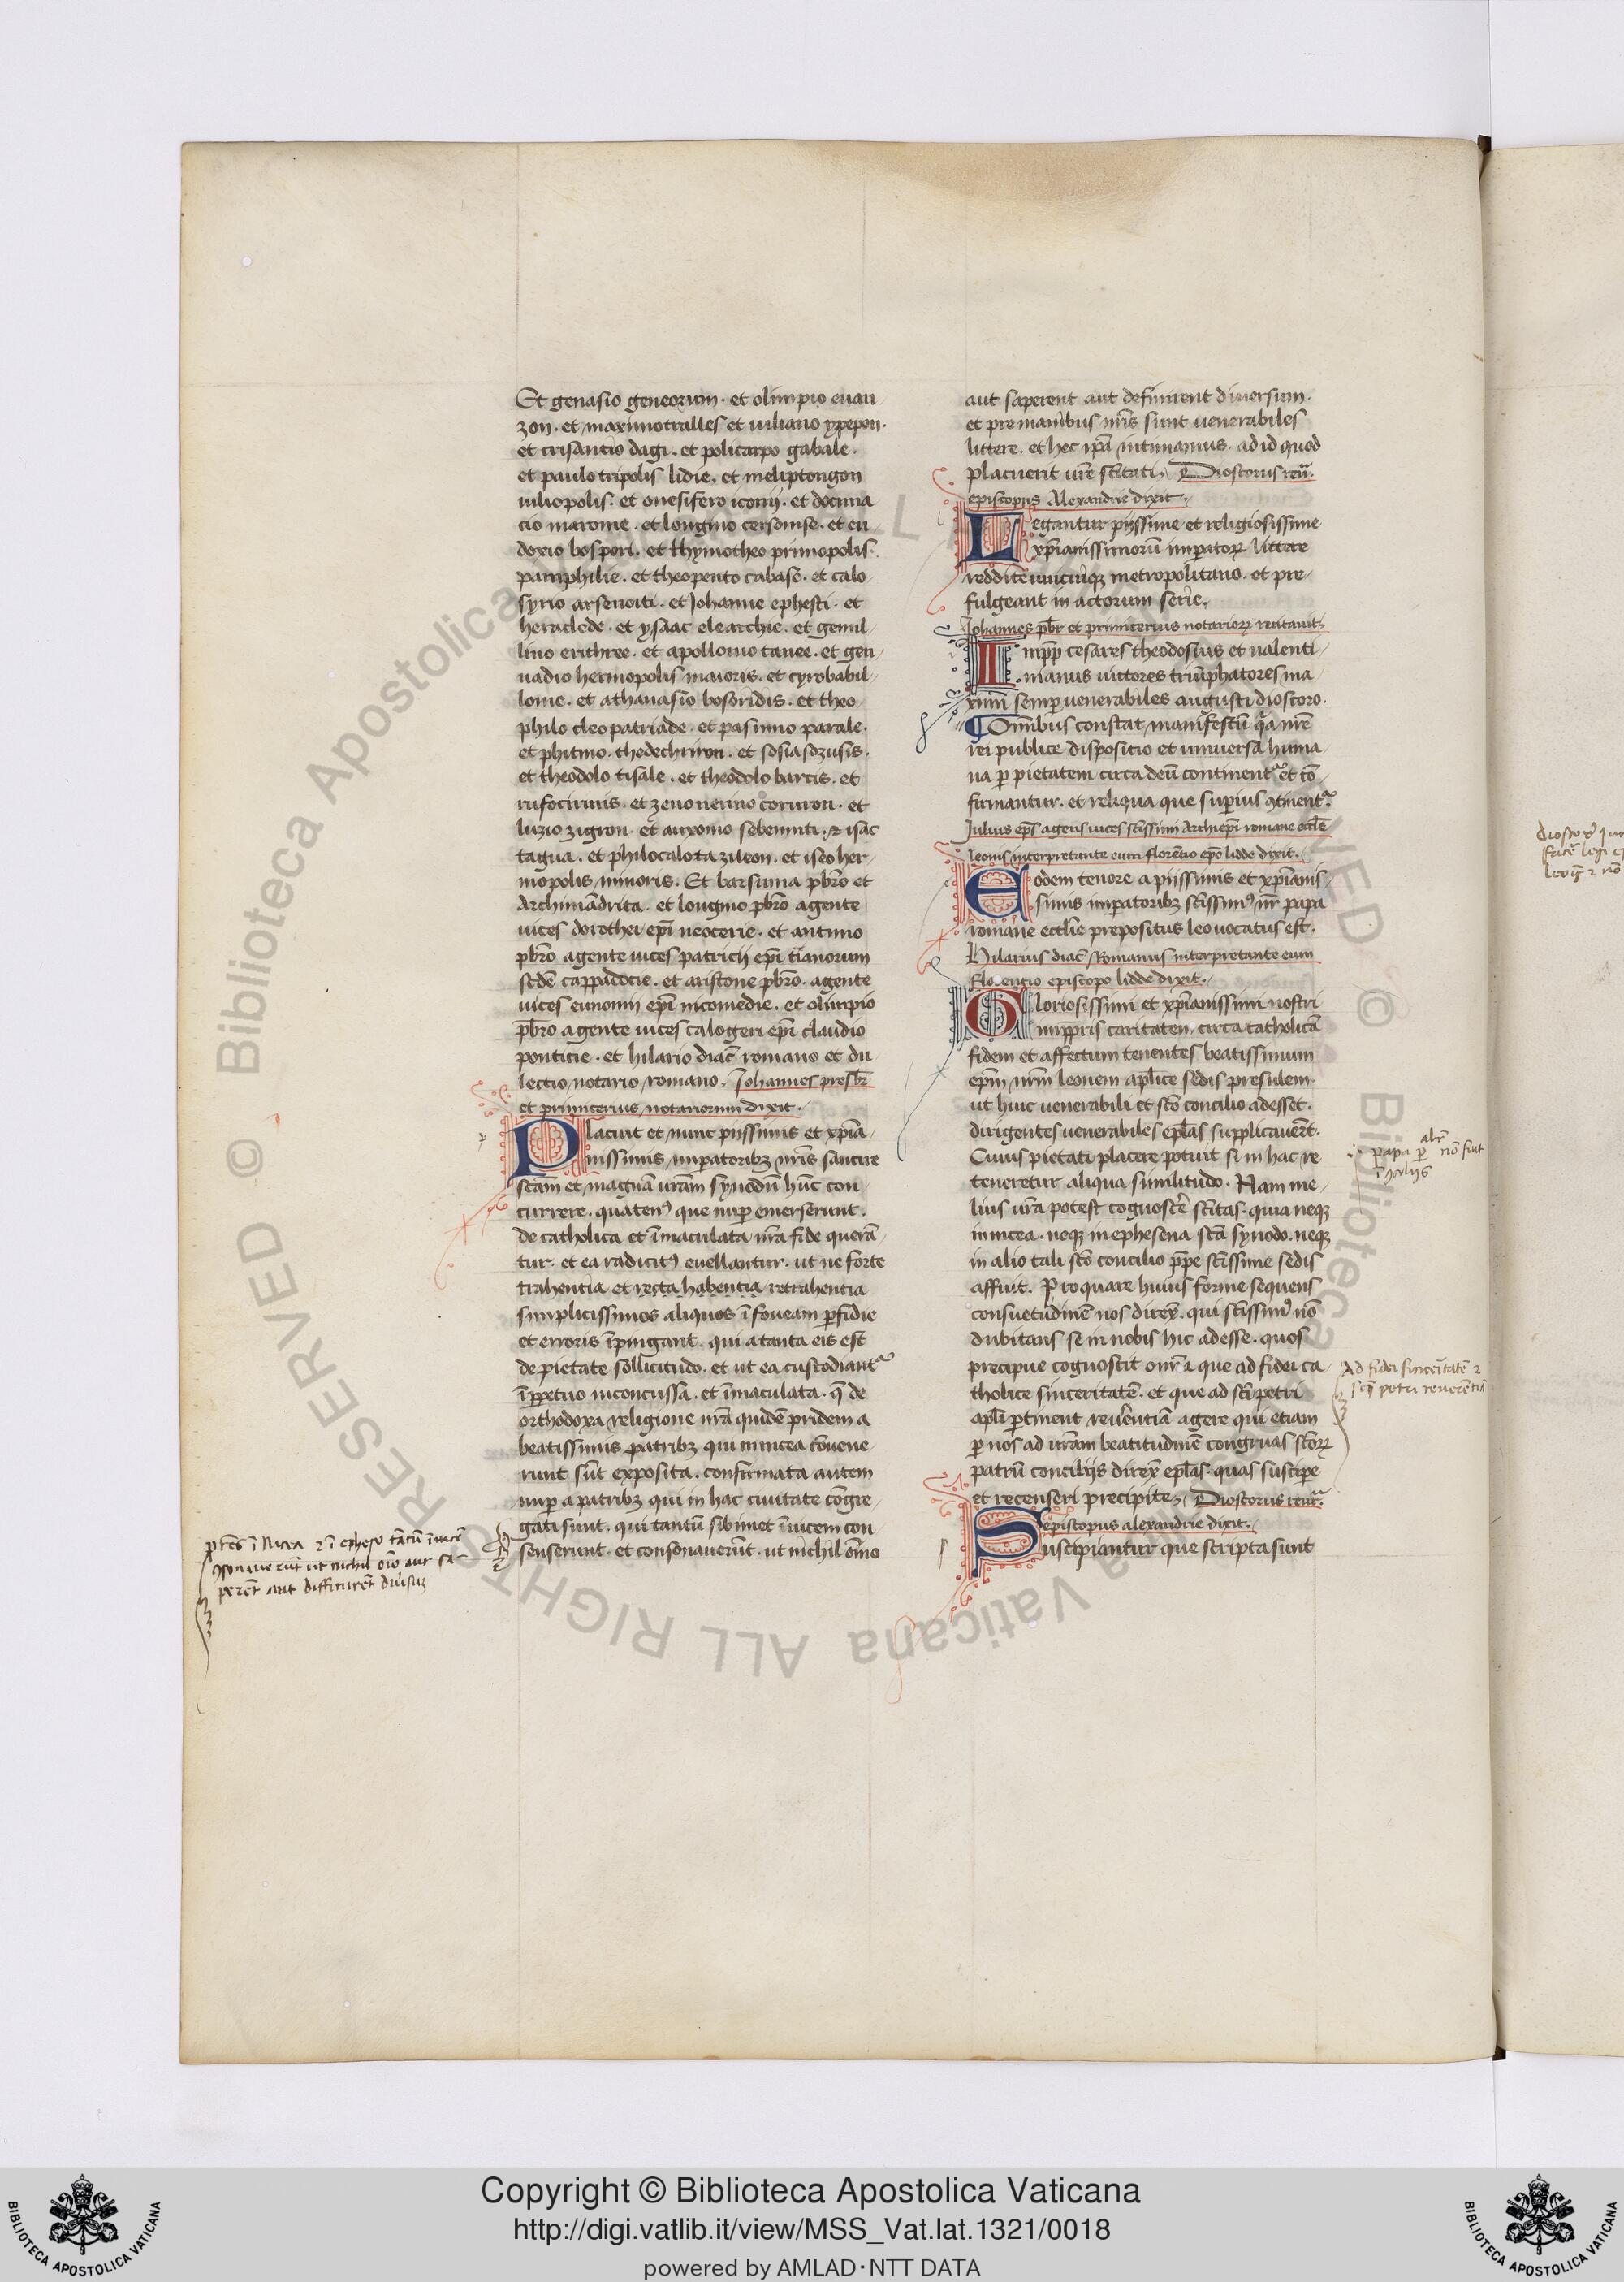 Et genasio geneorum · et olimpio euan
zon · et maximotralles et iuliano ypepon ·
et crisantio dagi · et policarpo gabale ·
et paulo tripolis lidie · et meliptongon
iuliopolis · et onesifero iconij · et docima
cio marome · et longino cersonise · et eu
doxio bospori · et thymotheo primopolis ·
pamphilie · et theopento cabasẽ · et calo
syrio arsenoiti · et Johanne ephesti · et
heraclede · et ysaac elearchie · et gemil
lino erithree · et apollonio tanee · et gen
nadio hermopolis maioris · et cyrobabil
lonie · et athanasio bosoridis · et theo
philo cleopatriade · et pasinnio parale ·
et phitino · thedechriron · et sosiasozusis ·
et theodolo tisale · et theodolo barcis · et
rufocirinis · et zenonerino coruron · et
luzio zigron · et auxonio sebenniti · ⁊ isac
tagua · et philocalotazileon · et iseo her
mopolis minoris · Et barsuma pbr̃o et
Archimãdrita · et longino pbr̃o agente
uices dorothei epĩ neocerie · et antimo
pbr̃o agente uices patricij epĩ tianorum
scđe cappadocie · et aristone pbr̃o · agente
uices eunomij epĩ nicomedie · et olimpio
pbr̃o agente uices calogeri epĩ claudio
ponticie · et hilario diac̃ romano et du
lectio notario romano · Johannes presbr̃
et primicerius notariorum dixit ·
Placuit et nunc pijssimis et xp̃ia
nissimis imperatoribꝫ nr̃is sancire
scãm et magnã ur̃am synodũ hũc con
currere · quatenꝰ que nuper emerserunt ·
de catholica et ĩmaculata nr̃a fide querã
tur · et ea radicitꝰ euellantur · ut ne forte
trahentia et recta habentia retrahentia
simplicissimos aliquos ĩ foueam ꝑfidie
et erroris ĩpingant · qui a tanta eis est
de pietate sollicitudo · et ut ea custodiantʳ
ĩ ꝑpetuo inconcussa · et ĩmaculata · q̃ de
orthodoxa religione nr̃a quidẽ pridem a
beatissimis patribꝫ qui in nicea cõuene
runt sũt exposita · confirmata autem
nuꝑ a patribꝫ qui in hac ciuitate cõgre
gati sunt · qui tantũ sibimet ĩuicem con
senserunt · et consonauerũt · ut nichil om̃o
ptẽs ĩ Nicea ⁊ ĩ epheso tãtũ ĩuicẽ
ꝯsonauerũt ut nichil oĩo aut sa
perẽt aut diffinirẽt diũsuꝫ
aut saperent aut definirent diuersum ·
et pre manibus nr̃is sunt uenerabiles
littere · et hec ip̃a intimamus · ad id quod
placuerit ur̃e sc̃itati · Dioscorus reũ ·
episcopus Alexandrie dixit ·
Legantur pijssime et religiosissime
xp̃ianissimorũ imperatoꝝ littere
reddite unicuiqꝫ metropolitano · et pre
fulgeant in actorum serie ·
Johannes pbr̃ et primicerius notarioꝝ recitauit ·
Imp̃p cesares theodosius et ualenti
nianus uictores triũphatores ma
ximi semꝑ uenerabiles augusti dioscoro ·
Omnibus constat manifestũ q̃a nr̃e
rei publice dispositio et uniuersa huma
na ꝑ pietatem circa deũ continentʳ et cõ
firmantur · et reliqua que superius ꝯtinentʳ
Julius ep̃s agens uices sc̃issimi Archiep̃i romane eccl̃e
leonis interpretante eum florẽtio ep̃o lidde dixit ·
Eodem tenore a piissimis et xp̃ianis
simis imperatoribꝫ sc̃issimꝰ nr̃ papa
romane eccl̃ie prepositus leo uocatus est ·
Hilarius diac̃ Romanus interpretante eum
Florentio episcopo lidde dixit ·
Gloriosissimi et xp̃ianissimi nostri
imp̃pris caritatem circa catholicã
fidem et affectum tenentes beatissimum
ep̃m nr̃m leonem apl̃ice sedis presulem ·
ut huic uenerabili et sc̃o concilio adesset ·
dirigentes uenerabiles epl̃as supplicauer̃t ·
Cuius pietati placere potuit si in hac re
teneretur aliqua similitudo · Nam me
lius ur̃a potest cognosc̃e sc̃itas · quia neqꝫ
in nicea · neqꝫ in ephesena sc̃a synodo · neqꝫ
in alio tali sc̃o concilio p̃pe sc̃issime sedis
affuit · Pro quare huius forme sequens
consuetudinẽ nos direx̃ · qui sc̃issimꝰ nõ
dubitans se in nobis hic adesse · quos
precipue cognoscit om̃ia que ad fidei ca
tholice sinceritatẽ · et que ad sc̃i petri
apl̃i ꝑtinent reuerẽtiã agere qui etiam
ꝑ nos ad ur̃am beatitudinẽ congruas sc̃oꝝ
patrũ concilijs direx̃ epl̃as · quas suscipe
et recenseri precipite · Dioscorus reur̃ ·
episcopus alexandrie dixit ·
Suscipiantur que scripta sunt
papa ꝑ nõ fuit
ĩ ꝯcilijs
Ad fidei sinceritatẽ ⁊
sc̃i petri reuerẽtiã
Copyright © Biblioteca Apostolica Vaticana
http://digi.vatlib.it/view/MSS_Vat.lat.1321/0018
powered by AMLAD·NTT DATA
BIBLIOTECA APOSTOLICA VATICANA
BIBLIOTECA APOSTOLICA VATICANA
© Biblioteca Apostolica Vaticana ALL RIGHTS RESERVED